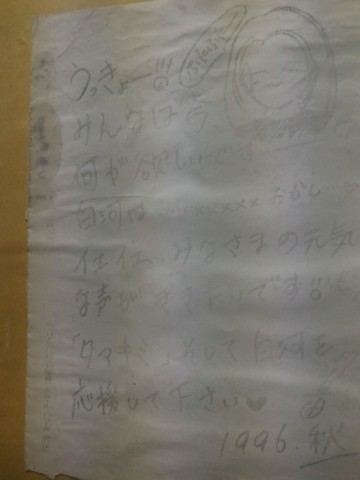 うっきょー!!!
みんなは今、
何が欲しいです
白河は……××××× おかし…
イエイエ、みなさまの元気
な声がききたいです!!
「タマキミ」そして白河を
応援して下さい♥
1996.秋